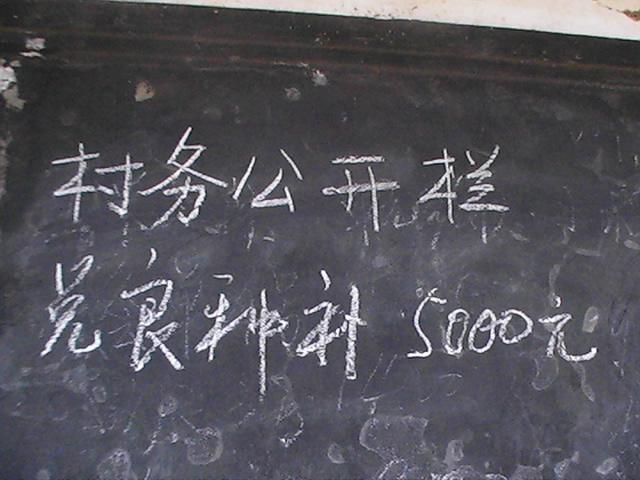 村务公开栏
兑良种补5000元